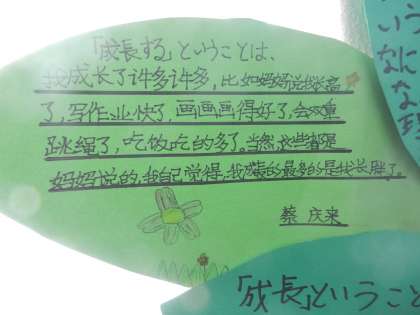 「成長する」ということは、
我成长了许多许多，比如妈妈说我长高
了，写作业快了，画画画得好了，会双重
跳绳了，吃饭吃的多了。当然，这些都是
妈妈说的，我自己觉得，我成长的最多的是我长胖了。
蔡 庆来
いう
なに
な
「成長」というこ